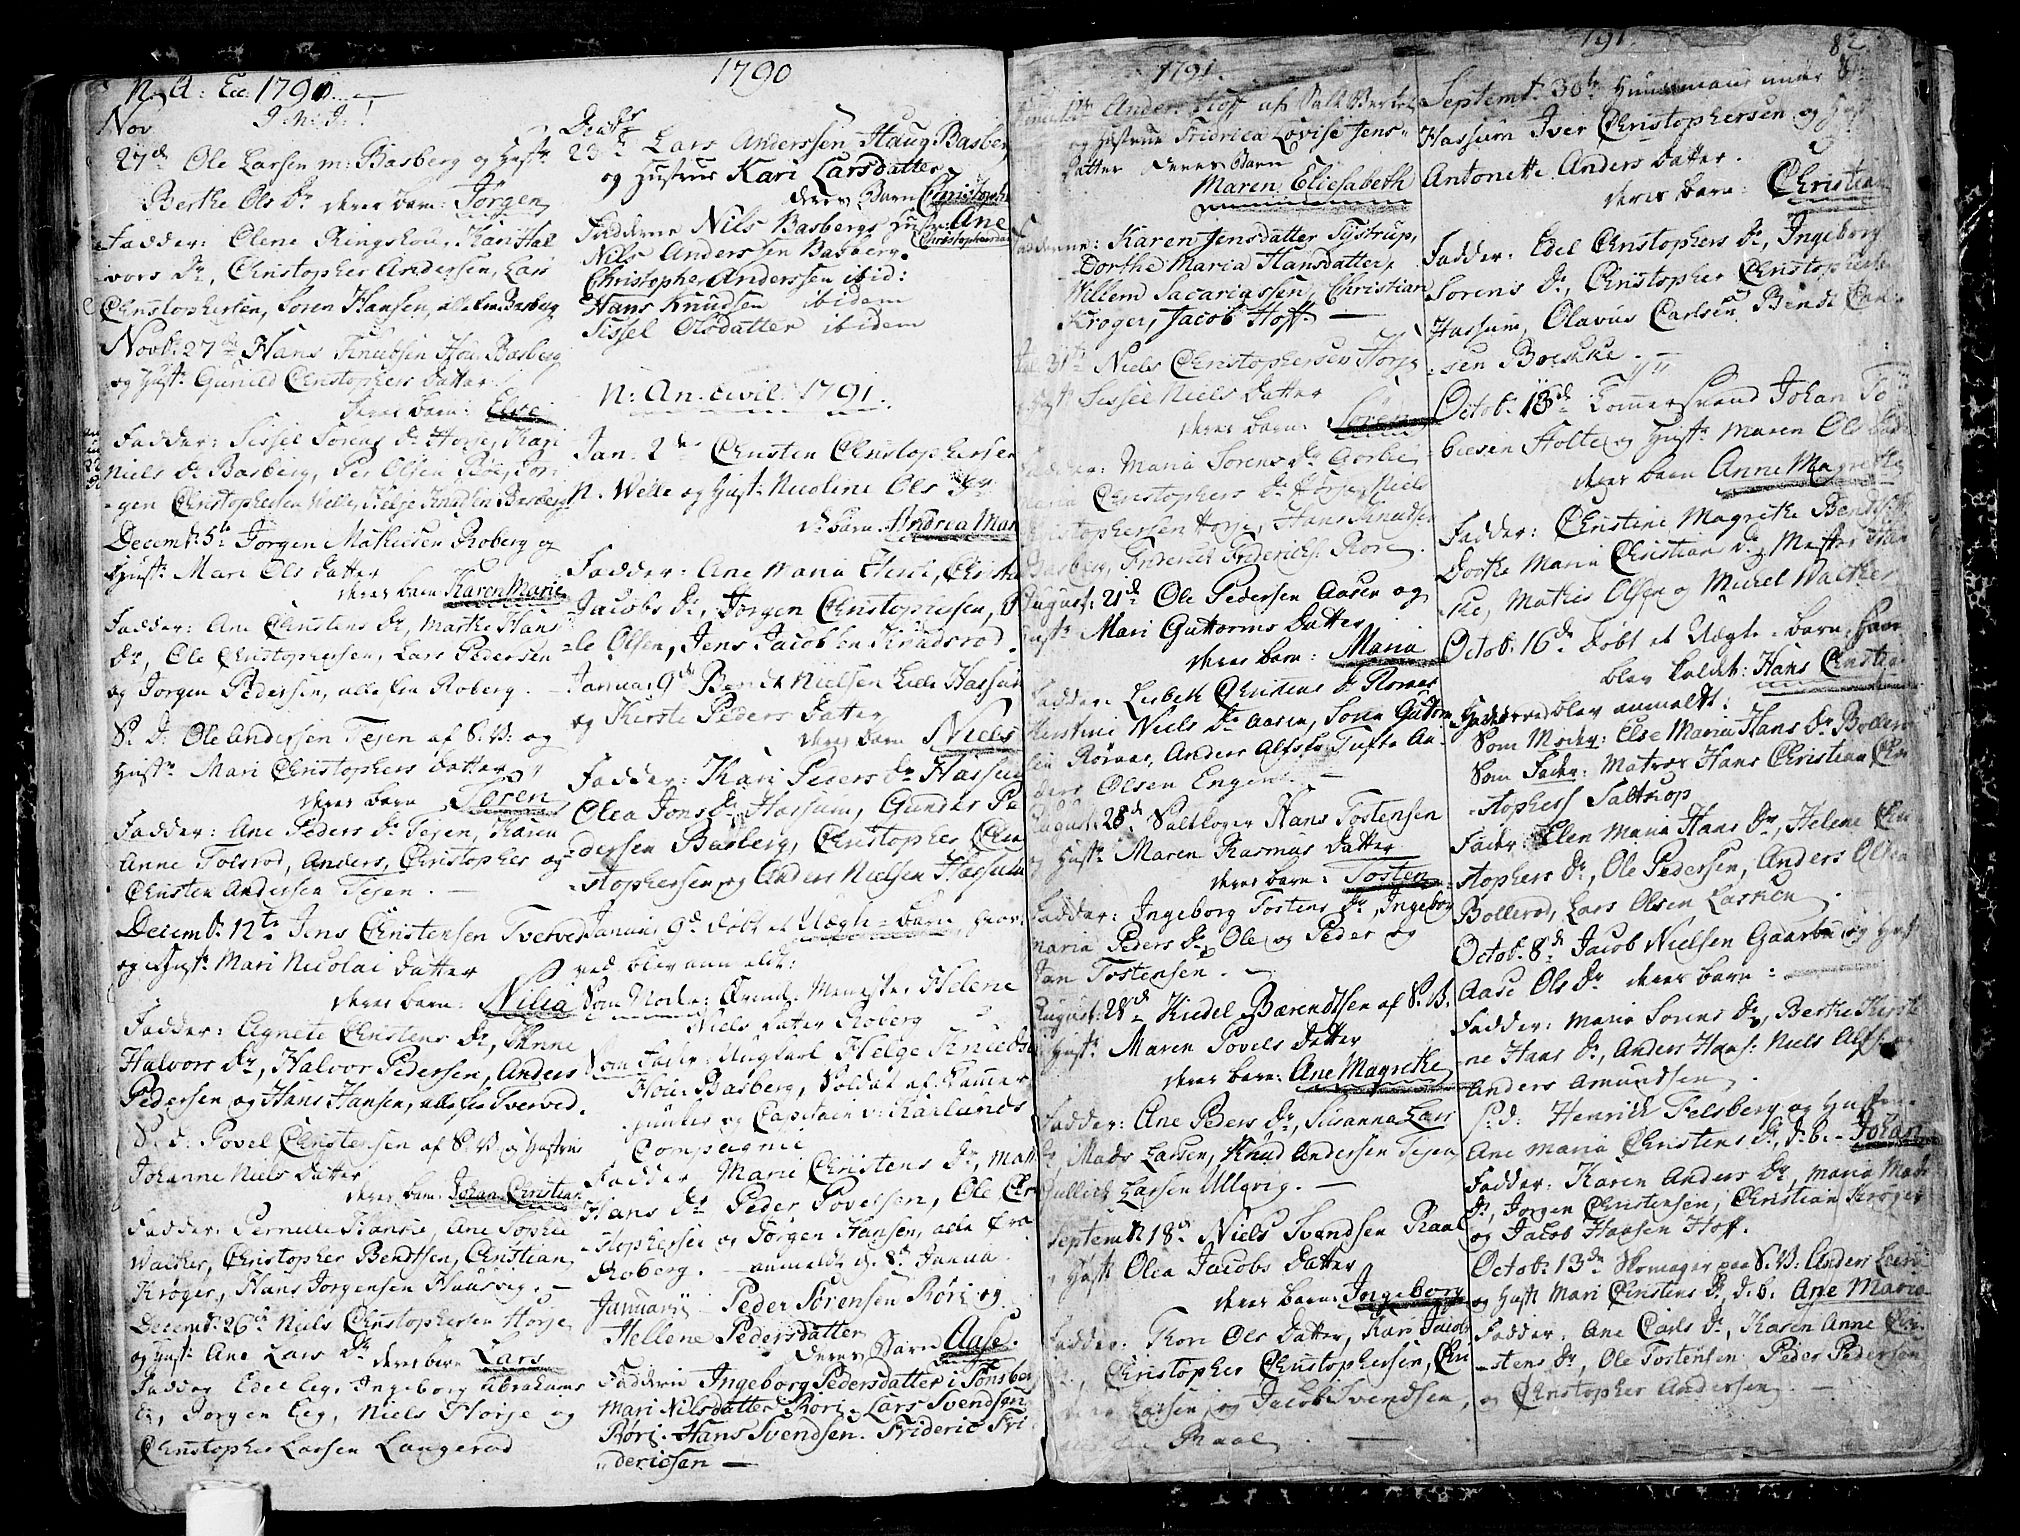 N. A. Ecc. 1790.
J. N. J. !
Nov.
27de Ole Larsen m: Basberg og Hustr.
Berthe Ols Dr. deres barn: Jørgen
Fadder: Olene Ringshou, Kari Hal
vors Dr, Christopher Andersen, Lars
Christophersen, Søren Hansen, alle fra Basberg
Novb: 27de Hans Knudsen Hou Basberg
og Hust: Gunild Christophers Datter
deres barn: Else
Fadder: Sissel Sørens Dr Horje, Kari
Niels Dr Basberg, Per Olsen Røe, Jør-
gen Christophersen Welle, Helje Knudsen Basberg
Decemb: 5te Jørgen Mathiesen Roberg og
Hust: Mari Ols Datter
deres barn Karen Marie
Fadder: Ane Christens Dr, Marthe Hans
Dr, Ole Christophersen, Lars Pedersen
og Jørgen Pedersen, alle fra Roberg.
S. D: Ole Andersen Tejen af S.V: og
Hustr: Mari Christophers Datter
deres barn Søren
Fadder: Ane Peders Dr Tejen, Karen
Anne Tolsrød, Anders, Christopher og
Christen Andersen Tejen.
Decemb: 12te Jens Christensen Tvetved
og Hust: Mari Nicolai Datter
deres barn: Nilia
Fadder: Agnete Christens Dr, Anne
Halvors Dr, Halvor Pedersen, Anders
Pedersen og Hans Hansen, alle fra Tvetved.
S. d: Povel Christensen af S.V og Hustrue
Johanne Niels Datter
deres barn: Johan Christian
Fadder: Pernille Hansen, Ane Sophie
Walker, Christopher Bendtsen, Christian
Krøger, Hans Jørgensen Haasseg.
Decemb: 26de Niels Christophersen Horje
og Hust: Ane Lars Dr deres barn Lars
Fadder Edel Eeg, Ingeborg Abrahams
Dr, Jørgen Eeg, Niels Horje og
Christopher Larsen Langerød
1790
Decbr
23de Lars Anderssen Haug Basberg
og Hustrue Kari Larsdatter
deres Barn Christopher
Fadderne Nils Basbergs Hustr: Ane
Christophersdat
Nils Anderssen Basberg.
Christopher Anderssen ibid:
Hans Knudsen ibidem
Sissel Olsdatter ibidem
N: An. civil: 1791.
Jan. 2de Christen Christophersen
N. Welle og Hust: Nicoline Ols Dr
d. barn: Andrea Mar
Fadder: Ane Maria , Christi
Jacobs Dr, Jørgen Christophersen, O
le Olsen, Jens Jacobsen Knudsrød.
Januar 9de Bendt Nielsen Lille Hassum
og Kirste Peders Datter
deres barn Niels
Fadder: Kari Peders Dr Hassum
Olea Jons Dr Hassum, Gunder Pe
dersen Basberg, Christopher Chri
stophersen, og Anders Nielsen Hassum
Januar 9de døbt et Uægte-barn, hvor
ved blev anmeldt:
Som Moder: Qvinde Menneske Helene
Niels Datter Roberg
Som Fader: Ungkarl Helge Knudsen
Hou Basberg, Soldat af Kammer-
junker og Capitain v: Karlunds
Compagnie
Fadder, Mari Christens Dr, Mart
Hans Dr Peder Povelsen, Ole Chri
stophersen og Jørgen Hansen, alle fra
Roberg. anmeldt d. 8de Januar
Januarii Peder Sørensen Røri og
Hellene Pedersdatter
deres Barn Aase.
Fadderne Ingeborg Pedersdatter i Tønsberg
Mari Nilsdatter Røri. Lars Svendsen
Røri. Hans Svendsen. Frideric Fri
dericsen
1791.
12te Anders Hoff af Salt Verket
og Hustrue Fridrica Lovise Jens-
datter deres Barn
Maren Eliesabeth
Fadderne: Karen Jensdatter Systrup,
Dorthe Maria Hansdatter,
Willem Sacariassen, Christian
Krøger, Jacob Hoff.
31te Niels Christophersen Horje
Hust: Sissel Niels Datter
deres barn: Søren
Fadder: Maria Sørens Dr Aorbe
Maria Christophers Dr Horje, Niels
Christophersen Horje, Hans Knudsen
Basberg, Friderich Friderichs: Røre.
August: 21de Ole Pedersen Aasen og
Hust: Mari Guttorms Datter
deres barn: Maria
Fadder: Lisbeth Christens Dr Roraas
Kirstine Niels Dr Aasen, Søren Guttorm
sen Røraas, Anders Alfsen Tufte An-
ders Olsen Engen.
August: 28de Saltkoger Hans Tostensen
og Hustr: Maren Rasmus Datter
deres barn: Tosten
Fadder: Ingeborg Tostens Dr, Ingeborg
Maria Peders Dr, Ole og Peder og
Jan Tostensen.
August: 28de Kiedel Bærendtsen af S.V.
Hust: Maren Povels Datter
deres barn: Ane Magrethe
Fadder: Ane Bers Dr, Susanna Lars
Dr, Mads Larsen, Knud Andersen Tejen
Gullich Larsen Ullevig.
Septemb: 18de Niels Svendsen Raal
Hust: Olea Jacobs Datter
deres barn: Ingeborg
Fadder: Thore Ols Datter, Kari Jacobs
Dr, Christopher Christophersen, Chri
Larsen, og Jacob Svendsen,
Raal
1791.
82
Septemb: 30te Huusmand under St:
Hassum Iver Christophersen og Hust:
Antonette Anders Datter.
deres barn: Christian
Fadder: Edel Christophers Dr, Ingeborg
Sørens Dr, Christopher Christophers:
Hassum, Olavus Carlsen, Bendt Chri
sen Boeskke.
Octob: 13de Tømmermand Johan To
biesen Holte og Hust: Maren Ols Datter
deres barn Anne Magrethe
Fadder: Christine Magrethe Bendts:
Dorthe Maria Christian Dr, Mester
ke, Mathis Olsen og Michel Walker
Octob: 16de døbt et Uægte-barn, som
blev kaldet: Hans Christia
Hvorved blev anmeldt:
Som Moder: Else Maria Hans Dr Bollerø
Som Fader: Matros Hans Christian Chri
stophers: Saltrop
Fadr: Elen Maria Hans Dr, Helene Chri
stophers Dr, Ole Pedersen, Anders Olsen
Bollerød, Lars Olsen Larsen
Octob: 8de Jacob Nielsen Gaarbu og Hust:
Aase Ols Dr deres barn:
Fadder: Maria Sørens Dr, Berthe Kirsti
ne Hans Dr, Anders Hans: Niels Alfsen
Anders Amundsen
S: d: Henrich Felsberg og Hustrue
Ane Maria Christens Dr, d. b. Johan
Fadder: Karen Anders Dr, Maria Mads
Dr, Jørgen Christensen, Christian Krøger
og Jacob Hansen Hoff.
Octob: 13de Skomager paa S.V: Anders Lars:
og Hust: Mari Christens Dr, d. b. Ane Maria
Fadder: Ane Carls Dr, Karen Anne Chri
stens Dr, Ole Tostensen Peder Pedersen
og Christopher Andersen.